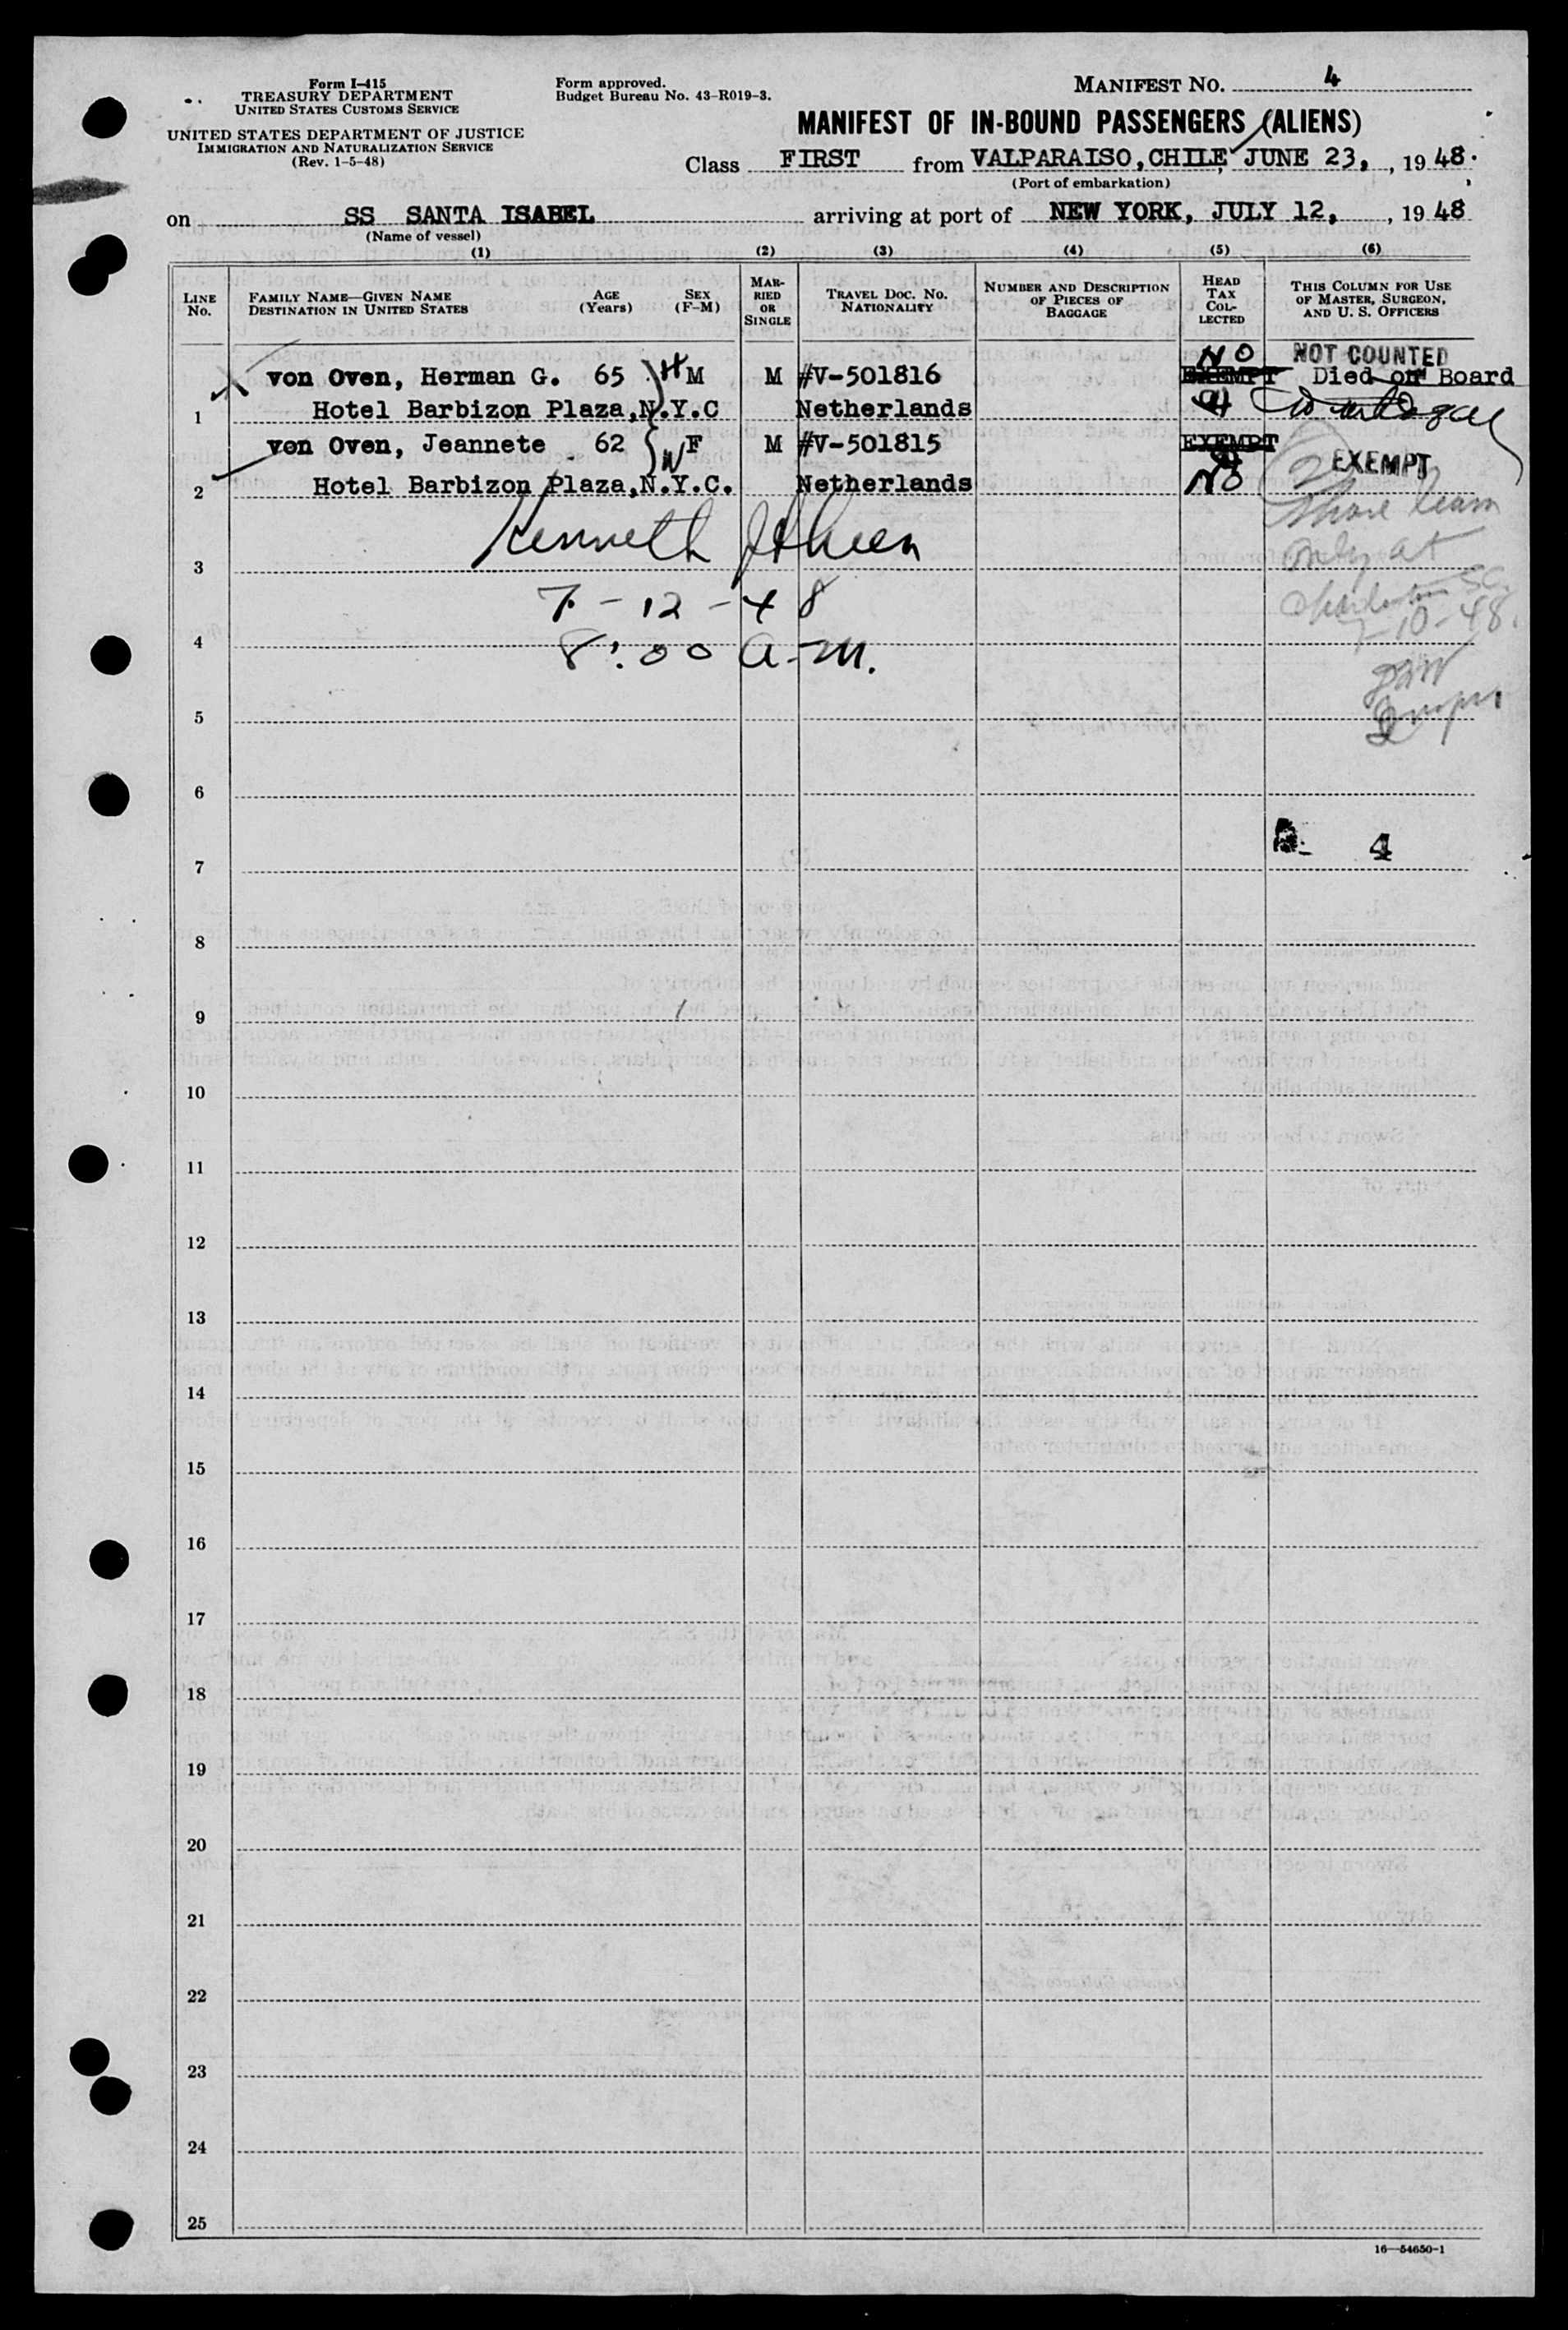 Form I-415
TREASURY DEPARTMENT
UNITED STATES CUSTOMS SERVICE
UNITED STATES DEPARTMENT OF JUSTICE
IMMIGRATION AND NATURALIZATION SERVICE
(Rev. 1-5-48)
Form approved.
Budget Bureau No. 43-R019-3.
MANIFEST NO. 4
MANIFEST OF IN-BOUND PASSENGERS (ALIENS)
Class FIRST from VALPARAISO, CHILE, JUNE 23, , 1948.
(Port of embarkation)
on SS SANTA ISABEL arriving at port of NEW YORK, JULY 12, , 1948
(Name of vessel)
(1) (2) (3) (4) (5) (6)
LINE No.
FAMILY NAME—GIVEN NAME
DESTINATION IN UNITED STATES
AGE (Years)
SEX (F-M)
MARRIED OR SINGLE
TRAVEL DOC. NO. NATIONALITY
NUMBER AND DESCRIPTION OF PIECES OF BAGGAGE
HEAD TAX COLLECTED
THIS COLUMN FOR USE OF MASTER, SURGEON, AND U. S. OFFICERS
NO NOT COUNTED
von Oven, Herman G. 65 H M M #V-501816 EXEMPT Died on Board
1 Hotel Barbizon Plaza, N.Y.C Netherlands
von Oven, Jeannete 62 W F M #V-501815 EXEMPT
EXEMPT
2 Hotel Barbizon Plaza, N.Y.C. Netherlands NO
Shore leave
Kenneth
only at
3
7-12-48
Charleston SC
7-10-48.
4
8:00 a.m.
5
6
4
7
8
9
10
11
12
13
14
15
16
17
18
19
20
21
22
23
24
25
16—54650-1